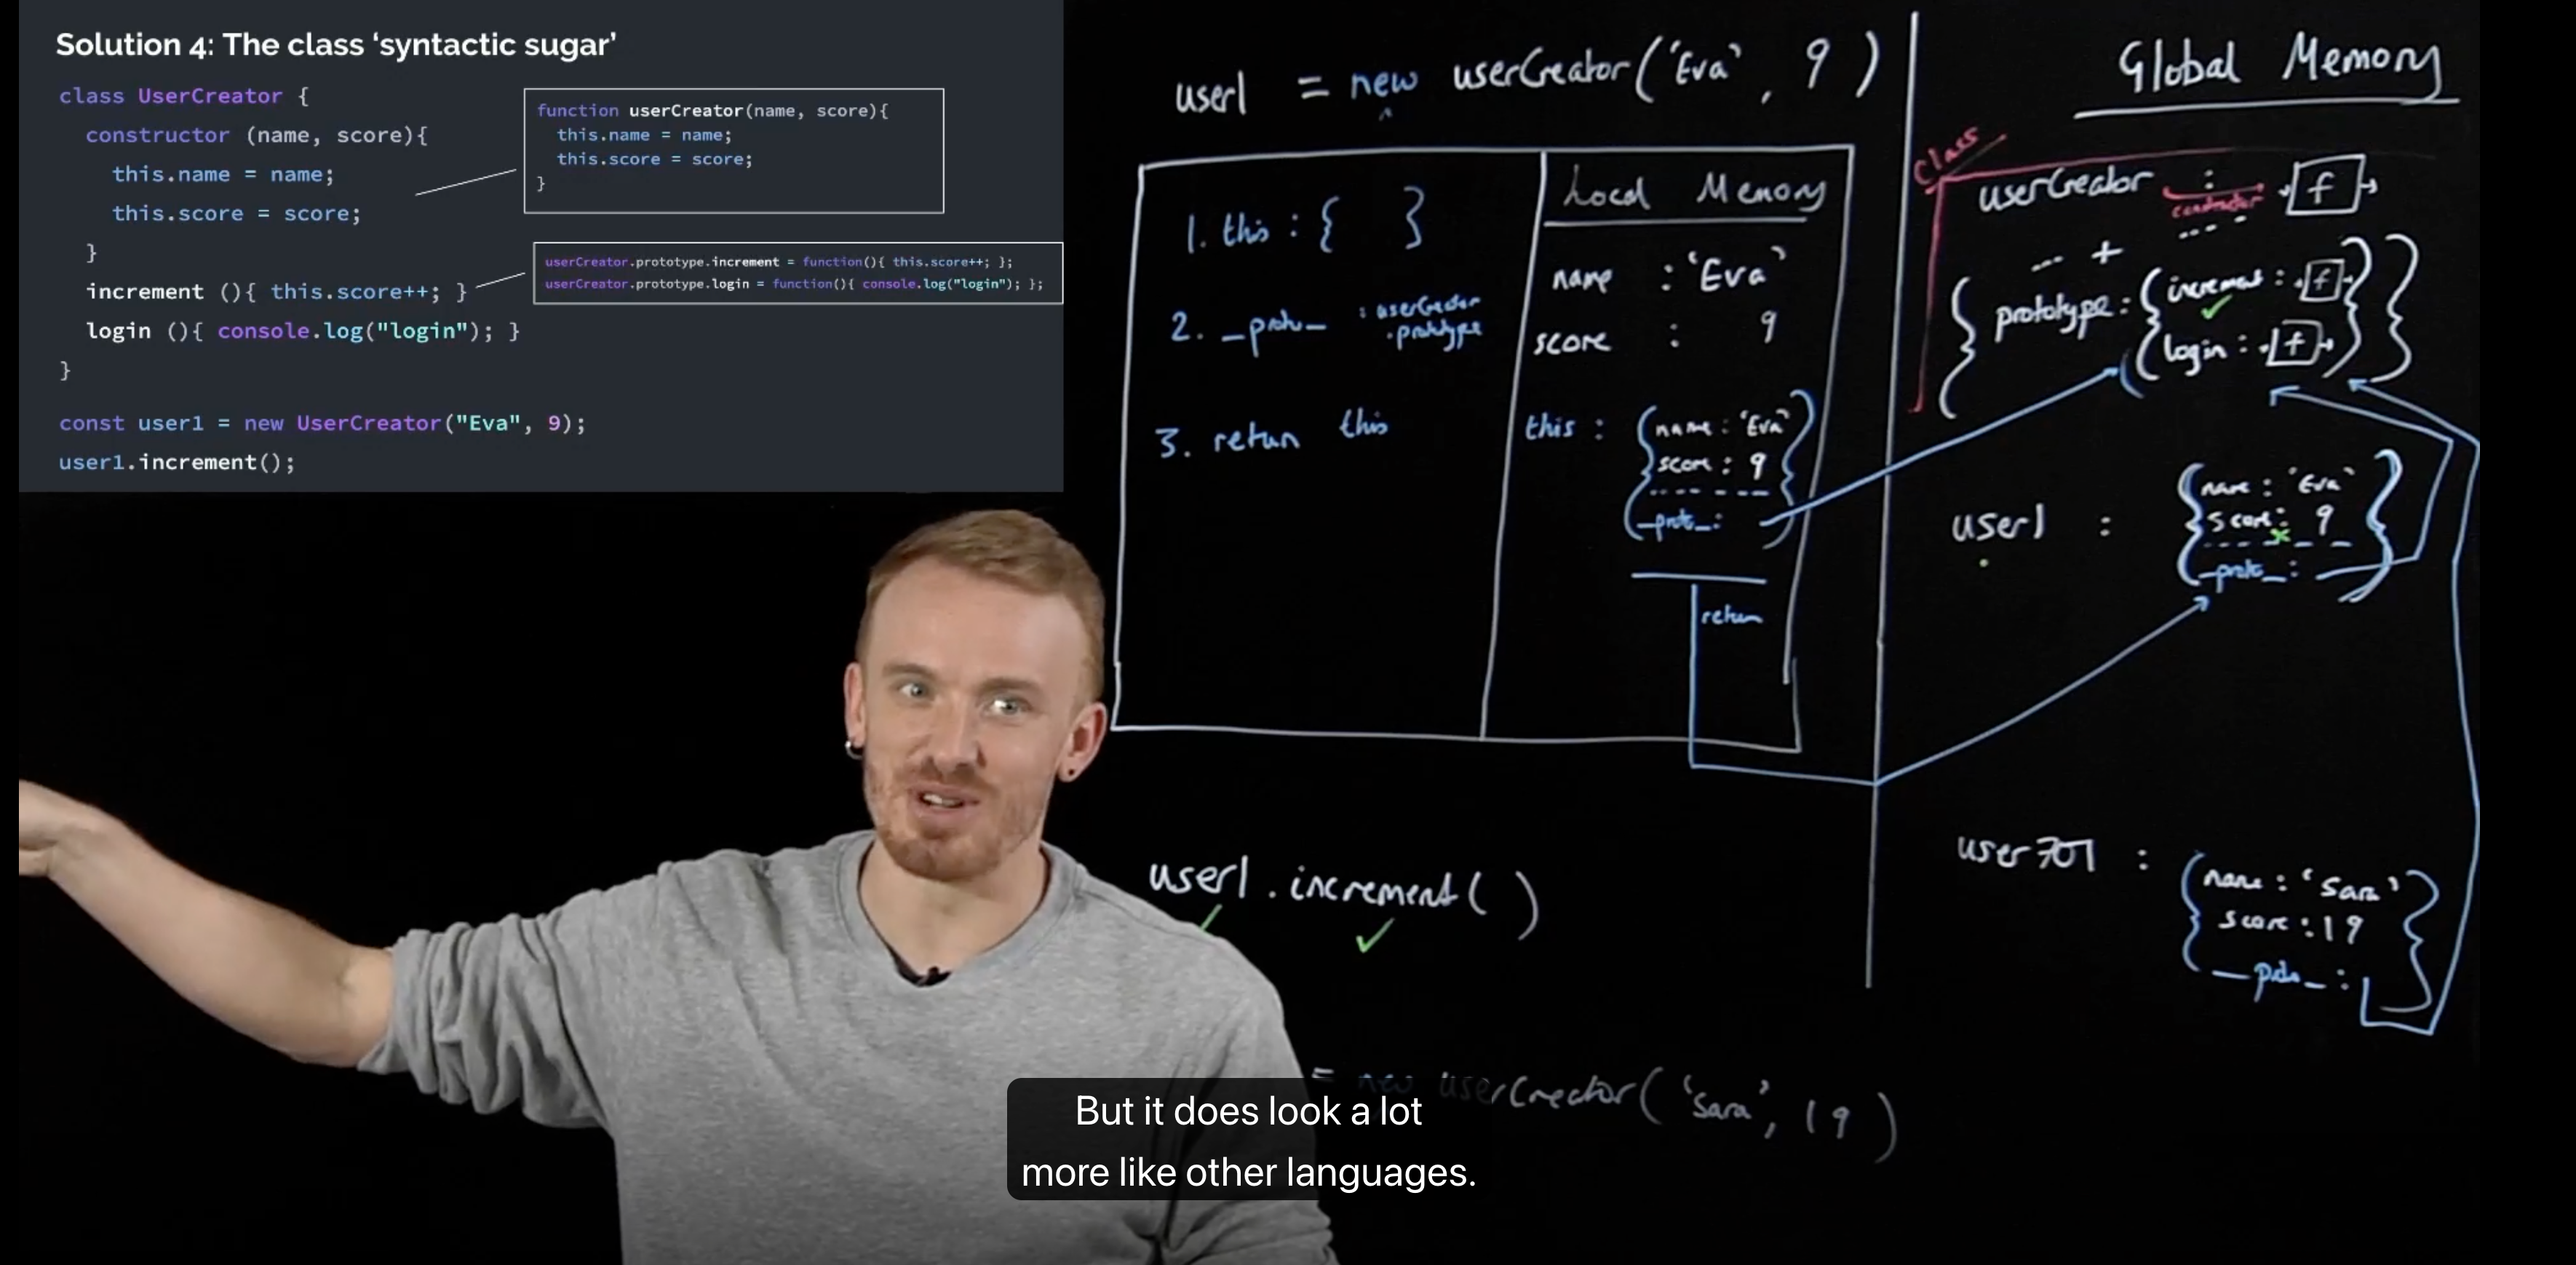 Solution 4: The class ‘syntactic sugar’
class UserCreator {
constructor (name, score){
this.name = name;
this.score = score;
}
increment (){ this.score++; }
login (){ console.log("login"); }
}
const user1 = new UserCreator("Eva", 9);
user1.increment();
function userCreator(name, score){
this.name = name;
this.score = score;
}
userCreator.prototype.increment = function(){ this.score++; };
userCreator.prototype.login = function(){ console.log("login"); };
user1 = new userCreator('Eva', 9)
1. this : { }
2. __proto__ : userCreator
.prototype
3. return this
Local Memory
name : 'Eva'
score : 9
this : { name : 'Eva'
score : 9
__proto__ : }
return
user1.increment( )
= new userCreator('Sara', 19)
Global Memory
Class
userCreator : f
constructor
+
{ prototype : { increment : f
login : f } }
user1 : { name : 'Eva'
score : 9
__proto__ : }
user701 : { name : 'Sara'
score : 19
__proto__ : }
But it does look a lot
more like other languages.